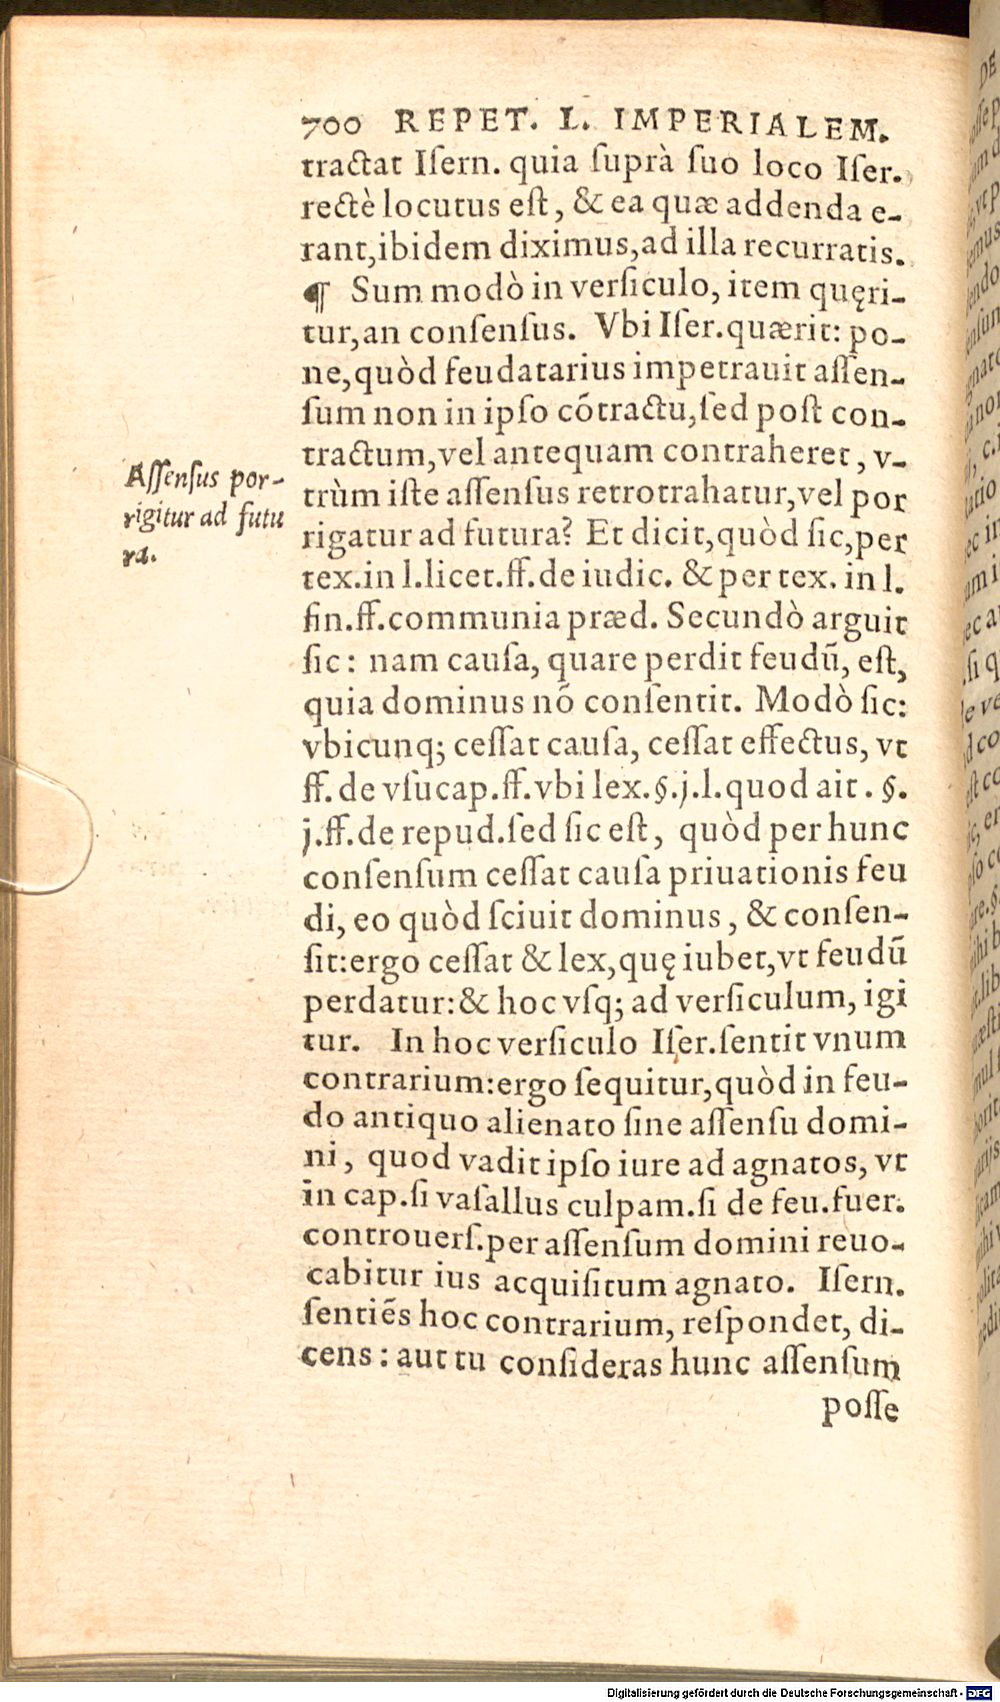 700 REPET. L. IMPERIALEM.
tractat Iſern. quia ſuprà ſuo loco Iſer.
rectè locutus eſt, & ea quæ addenda e-
rant, ibidem diximus, ad illa recurratis.
¶ Sum modò in verſiculo, item quęri-
tur, an conſenſus. Vbi Iſer. quærit: po-
ne, quòd feudatarius impetrauit aſſen-
ſum non in ipſo cõtractu, ſed poſt con-
tractum, vel antequam contraheret, v-
trùm iſte aſſenſus retrotrahatur, vel por
rigatur ad futura? Et dicit, quòd ſic, per
tex. in l. licet. ff. de iudic. & per tex. in l.
fin. ff. communia præd. Secundò arguit
ſic: nam cauſa, quare perdit feudũ, eſt,
quia dominus nõ conſentit. Modò ſic:
vbicunq; ceſſat cauſa, ceſſat effectus, vt
ff. de vſucap. ff. vbi lex. §. j. l. quod ait. §.
j. ff. de repud. ſed ſic eſt, quòd per hunc
conſenſum ceſſat cauſa priuationis feu
di, eo quòd ſciuit dominus, & conſen-
ſit: ergo ceſſat & lex, quę iubet, vt feudũ
perdatur: & hoc vſq; ad verſiculum, igi
tur. In hoc verſiculo Iſer. ſentit vnum
contrarium: ergo ſequitur, quòd in feu-
do antiquo alienato ſine aſſenſu domi-
ni, quod vadit ipſo iure ad agnatos, vt
in cap. ſi vaſallus culpam. ſi de feu. fuer.
controuerſ. per aſſenſum domini reuo-
cabitur ius acquiſitum agnato. Iſern.
ſentiẽs hoc contrarium, reſpondet, di-
cens: aut tu conſideras hunc aſſenſum
poſſe
Aſſenſus por-
rigitur ad futu
ra.
Digitalisierung gefördert durch die Deutsche Forschungsgemeinschaft - DFG